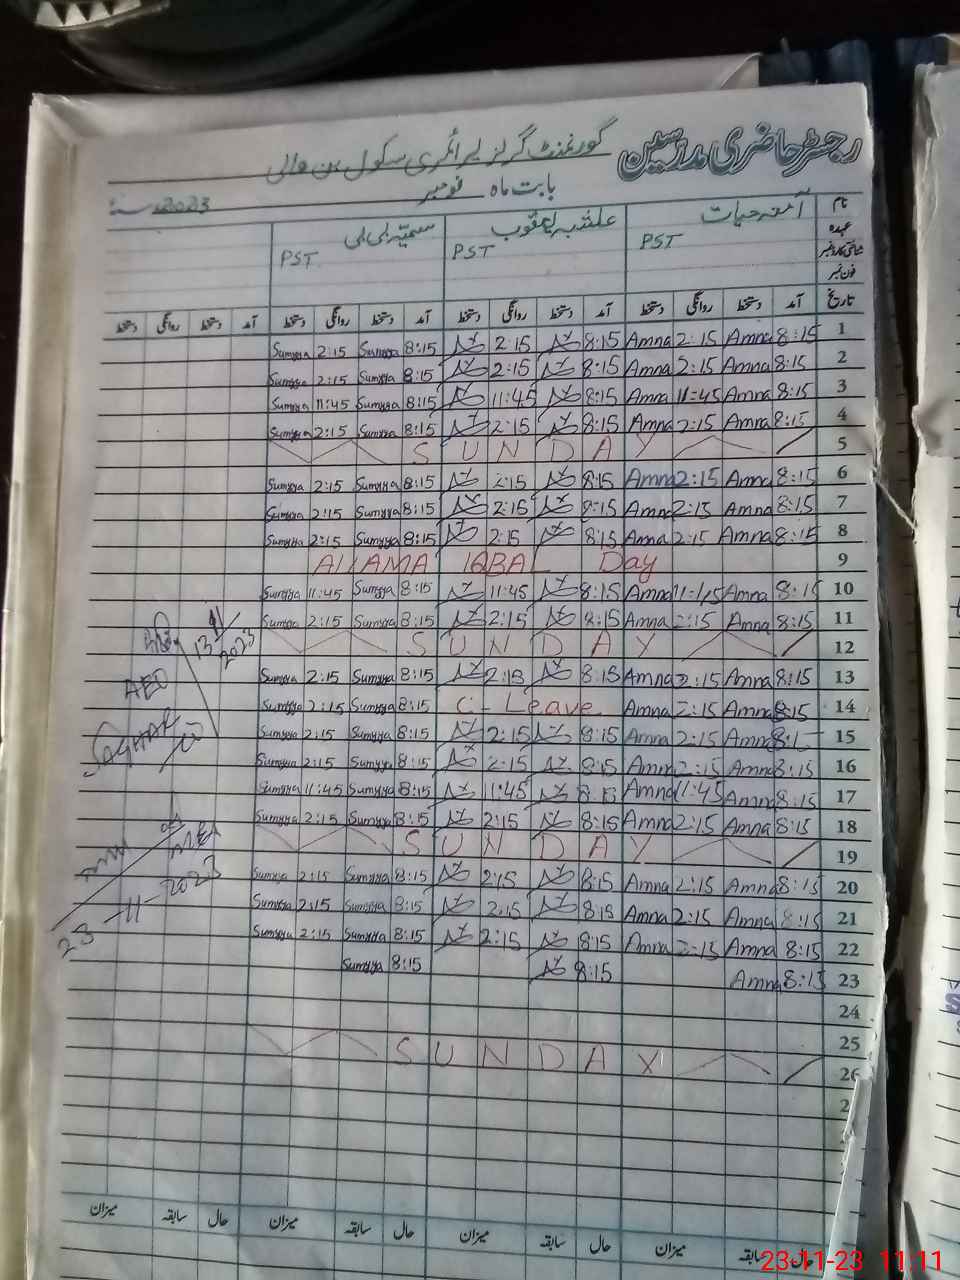 رجسٹر حاضری مدرسین گورنمنٹ گرلز پرائمری سکول بن والی
بابت ماہ نومبر 2023 سنہ
نام آمنہ حیات سمیہ بی بی
عہدہ PST PST PST
شناختی کارڈ نمبر
فون نمبر
تاریخ آمد دستخط روانگی دستخط آمد دستخط روانگی دستخط آمد دستخط روانگی دستخط آمد دستخط روانگی دستخط
1 8:15 Amna 2:15 Amna 8:15 2:15 8:15 Sumyya 2:15 Sumyya
2 8:15 Amna 2:15 Amna 8:15 2:15 8:15 Sumyya 2:15 Sumyya
3 8:15 Amna 11:45 Amna 8:15 11:45 8:15 Sumyya 11:45 Sumyya
4 8:15 Amna 2:15 Amna 8:15 2:15 8:15 Sumyya 2:15 Sumyya
5 SUNDAY
6 8:15 Amna 2:15 Amna 8:15 2:15 8:15 Sumyya 2:15 Sumyya
7 8:15 Amna 2:15 Amna 8:15 2:15 8:15 Sumyya 2:15 Sumyya
8 8:15 Amna 2:15 Amna 8:15 2:15 8:15 Sumyya 2:15 Sumyya
9 ALLAMA IQBAL Day
10 8:15 Amna 11:45 Amna 8:15 11:45 8:15 Sumyya 11:45 Sumyya
11 8:15 Amna 2:15 Amna 8:15 2:15 8:15 Sumyya 2:15 Sumyya
12 SUNDAY
13 8:15 Amna 2:15 Amna 8:15 2:15 8:15 Sumyya 2:15 Sumyya
14 8:15 Amna 2:15 Amna C-Leave 8:15 Sumyya 2:15 Sumyya
15 8:15 Amna 2:15 Amna 8:15 2:15 8:15 Sumyya 2:15 Sumyya
16 8:15 Amna 2:15 Amna 8:15 2:15 8:15 Sumyya 2:15 Sumyya
17 8:15 Amna 11:45 Amna 8:15 11:45 8:15 Sumyya 11:45 Sumyya
18 8:15 Amna 2:15 Amna 8:15 2:15 8:15 Sumyya 2:15 Sumyya
19 SUNDAY
20 8:15 Amna 2:15 Amna 8:15 2:15 8:15 Sumyya 2:15 Sumyya
21 8:15 Amna 2:15 Amna 8:15 2:15 8:15 Sumyya 2:15 Sumyya
22 8:15 Amna 2:15 Amna 8:15 2:15 8:15 Sumyya 2:15 Sumyya
23 8:15 Amna 8:15 8:15 Sumyya
24
25
26 SUNDAY
2
13/11/2023
AEO
MEA
23-11-2023
حال سابقہ میزان حال سابقہ میزان حال سابقہ میزان حال سابقہ میزان
23-11-23 11:11